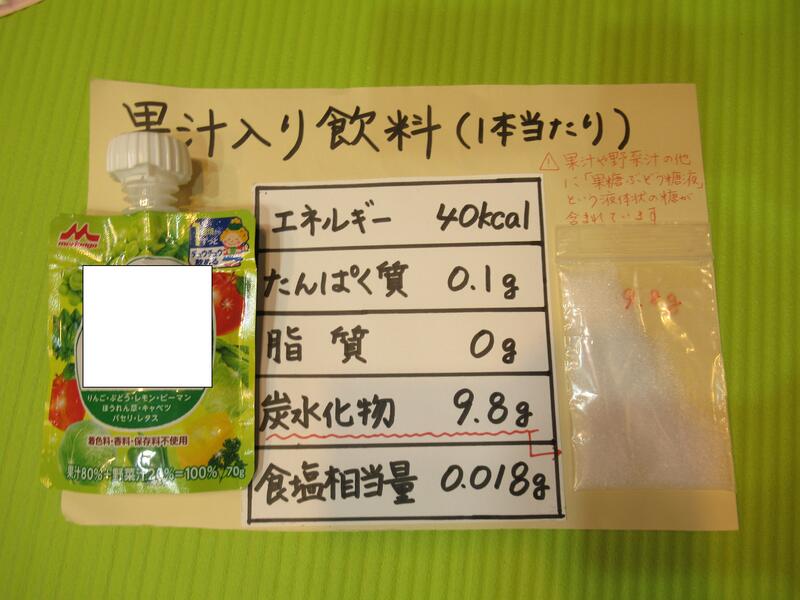 果汁入り飲料(1本当たり)
⚠果汁や野菜汁の他
に「果糖ぶどう糖液」
という液体状の糖が
含まれています
エネルギー 40kcal
たんぱく質 0.1g
脂質 0g
炭水化物 9.8g
食塩相当量 0.018g
9.8g
morinaga
チュウチュウ
飲める
りんご・ぶどう・レモン・ピーマン
ほうれん草・キャベツ
パセリ・レタス
着色料・香料・保存料不使用
果汁80%+野菜汁20%=100% 70g